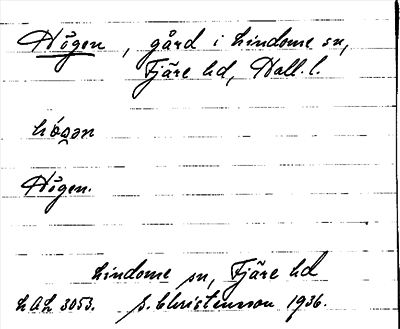 Högen, gård i Lindome sn,
Fjäre hd, Hall. l.
hǫ́gən
Högen.
Lindome sn, Fjäre hd
LAL 3053. S. Christensson 1936.